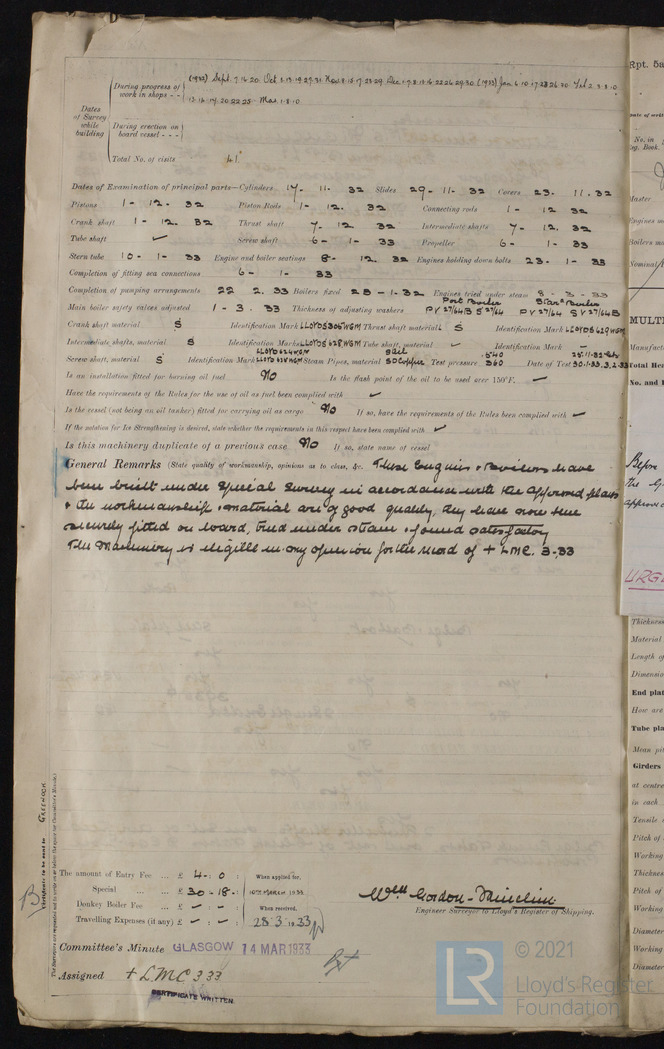 (1932) Sept. 7.16.20. Oct 3.13.19.27.31 Nov 8.15.17.23.29. Dec 1.7.8.13.16.22.26.29.30 (1933) Jan 6.10.17.23.26.30 Feb 2.3.8.10
During progress of work in shops - -
13.16.17.20.22.25 Mar 1.8.10
Dates of Survey while building
During erection on board vessel - - -
Total No. of visits 41.
Dates of Examination of principal parts—Cylinders 17 - 11 - 32 Slides 29 - 11 - 32 Covers 23. 11. 32
Pistons 1 - 12. 32 Piston Rods 1 - 12. 32 Connecting rods 1 - 12 32
Crank shaft 1 - 12. 32 Thrust shaft 7 - 12. 32 Intermediate shafts 7 - 12. 32
Tube shaft ✓ Screw shaft 6 - 1 - 33 Propeller 6 - 1 - 33
Stern tube 10 - 1 - 33 Engine and boiler seatings 8 - 12. 32 Engines holding down bolts 23 - 1 - 33
Completion of fitting sea connections 6 - 1 - 33
Completion of pumping arrangements 22 2. 33 Boilers fixed 23 - 1 - 32 Engines tried under steam 8 - 3 - 33
Port Boiler Starb Boiler
Main boiler safety valves adjusted 1 - 3. 33 Thickness of adjusting washers PV 27/64 S 27/64 PV 27/64 SV 27/64
Crank shaft material S Identification Mark LLOYDS 305 WGM Thrust shaft material S Identification Mark LLOYDS 629 WGM
Intermediate shafts, material S Identification Marks LLOYDS 628 WGM Tube shaft, material ✓ Identification Mark —
LLOYD 624 WGM Steel 540
Screw shaft, material S Identification Mark Steam Pipes, material SD Copper Test pressure 360 Date of Test 30.1.33. 3.2.33
Is an installation fitted for burning oil fuel No Is the flash point of the oil to be used over 150°F. ✓
Have the requirements of the Rules for the use of oil as fuel been complied with ✓
Is the vessel (not being an oil tanker) fitted for carrying oil as cargo No If so, have the requirements of the Rules been complied with ✓
If the notation for Ice Strengthening is desired, state whether the requirements in this respect have been complied with ✓
Is this machinery duplicate of a previous case No If so, state name of vessel
General Remarks (State quality of workmanship, opinions as to class, &c. These Engines & Boilers have
been built under Special Survey in accordance with the approved plans
& the workmanship & material are of good quality, they have now been
securely fitted on board, tried under steam & found satisfactory
The Machinery is eligible in my opinion for the record of + LMC. 3-33
Certificate to be sent to GREENOCK
The amount of Entry Fee ... £ 4 - 0 :
Special ... ... £ 30 - 18 :
Donkey Boiler Fee ... £ - : - :
Travelling Expenses (if any) £ - : - :
When applied for,
10TH MARCH 1933
When received,
28.3.1933
Wm Gordon-
Engineer Surveyor to Lloyd's Register of Shipping.
Committee's Minute GLASGOW 14 MAR 1933
Assigned + LMC 3 33
CERTIFICATE WRITTEN.
Rpt. 5a
No. in
Reg. Book.
Master
Engines m
Boilers m
Nominal
MULTI
Manufact
Total Hea
No. and
Before
the
approve
URG
Thickness
Material
Length o
Dimensio
End plat
How are
Tube pla
Mean pit
Girders
at centre
in each
Tensile
Pitch of
Working
Thickness
Pitch of
Working
Diameter
Working
Diameter
LR
© 2021
Lloyd's Register
Foundation